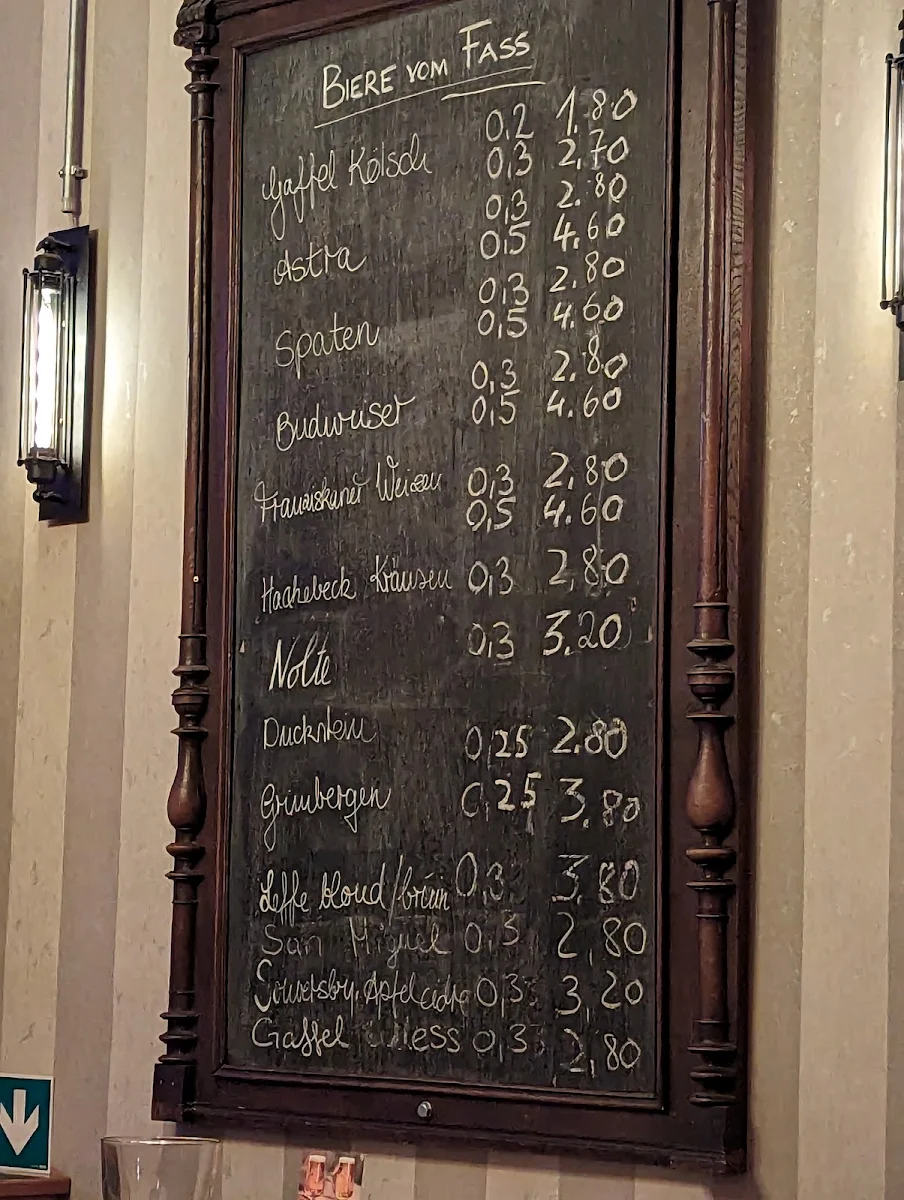 BIERE VOM FASS
0,2 1.80
Gaffel Kölsch 0,3 2,70
0,3 2.80
Astra 0,5 4.60
0,3 2.80
Spaten 0,5 4.60
0,3 2.80
Budweiser 0,5 4.60
Franziskaner Weizen 0,3 2,80
0,5 4.60
Haake beck Kräusen 0,3 2,80
Nolte 0,3 3.20
Duckstein 0,25 2.80
Grimbergen 0,25 3.80
Leffe bloud/brün 0,3 3.80
San Miguel 0,3 2,80
Somersby Apfelcidre 0,3 3,20
Gaffel Wiess 0,3 2,80